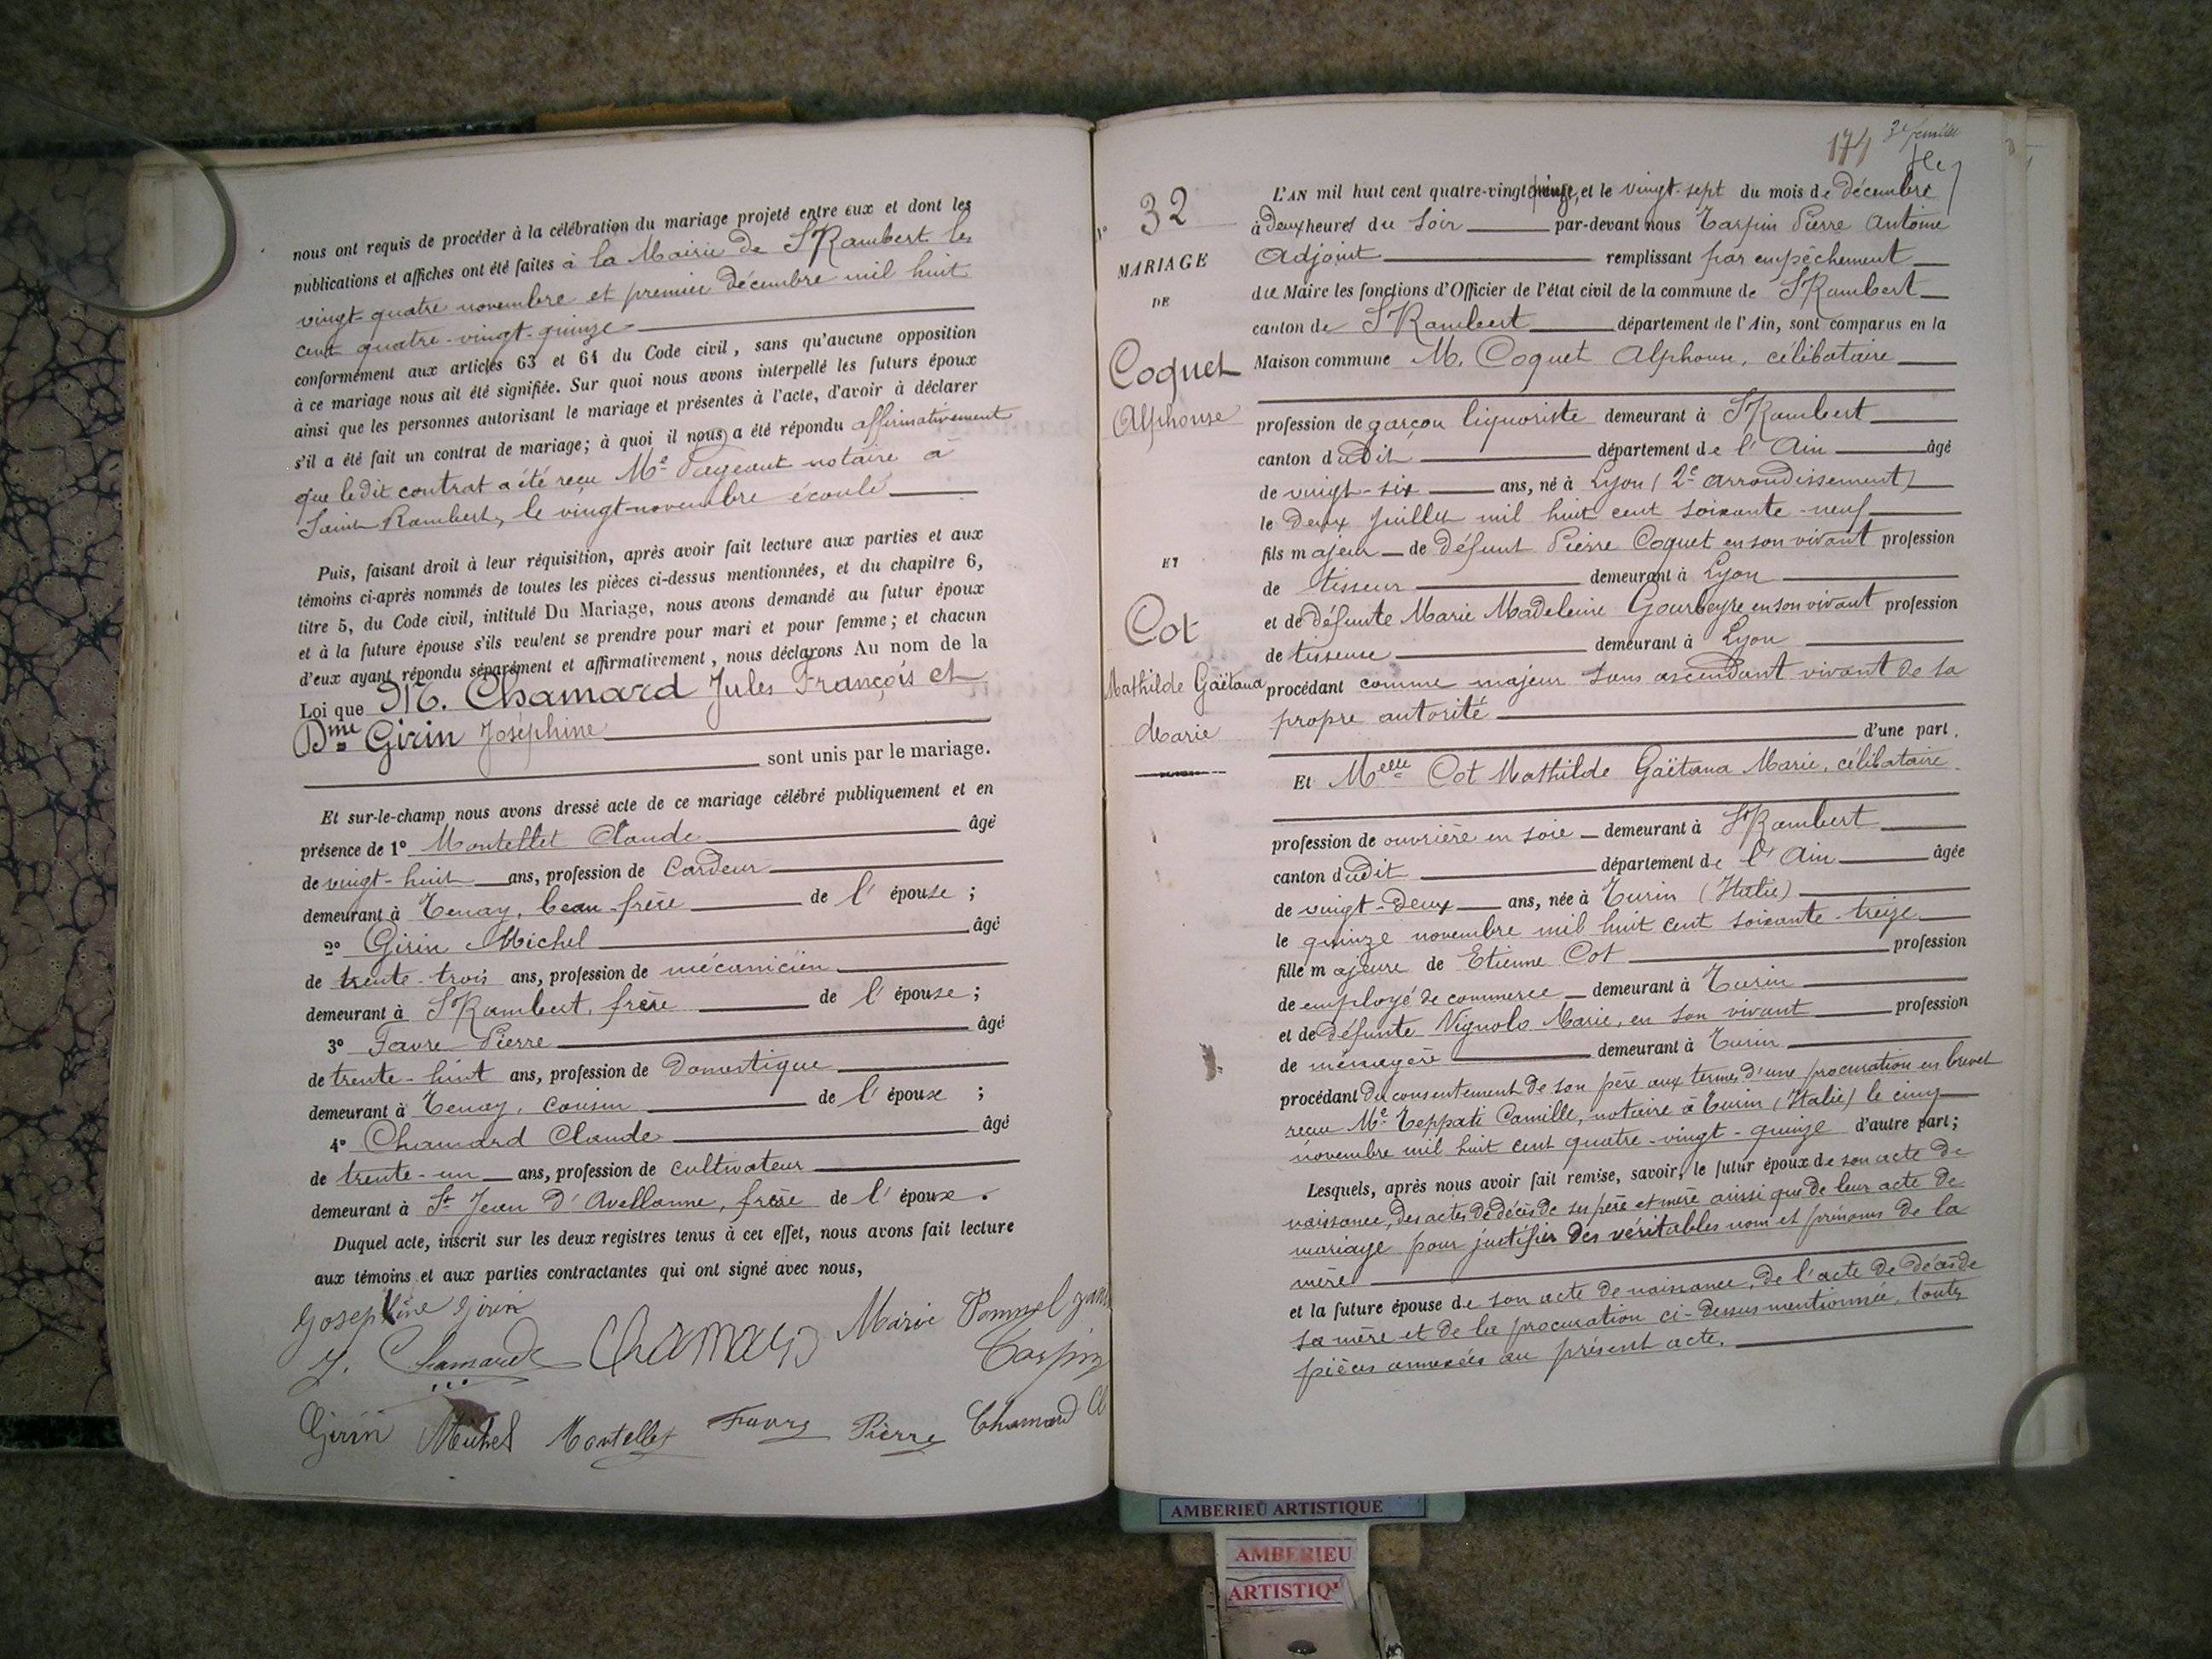 nous ont requis de procéder à la célébration du mariage projeté entre eux et dont les
publications et affiches ont été faites à la Mairie de St Rambert les
vingt-quatre novembre et premier décembre mil huit
cent quatre-vingt-quinze
conformément aux articles 63 et 64 du Code civil, sans qu'aucune opposition
à ce mariage nous ait été signifiée. Sur quoi nous avons interpellé les futurs époux
ainsi que les personnes autorisant le mariage et présentes à l'acte, d'avoir à déclarer
s'il a été fait un contrat de mariage; à quoi il nous a été répondu affirmativement
que ledit contrat a été reçu Me Pageaut notaire à
Saint Rambert, le vingt-novembre écoulé
Puis, faisant droit à leur réquisition, après avoir fait lecture aux parties et aux
témoins ci-après nommés de toutes les pièces ci-dessus mentionnées, et du chapitre 6,
titre 5, du Code civil, intitulé Du Mariage, nous avons demandé au futur époux
et à la future épouse s'ils veulent se prendre pour mari et pour femme; et chacun
d'eux ayant répondu séparément et affirmativement, nous déclarons Au nom de la
Loi que M. Chamard Jules François et
Dme Girin Joséphine
sont unis par le mariage.
Et sur-le-champ nous avons dressé acte de ce mariage célébré publiquement et en
présence de 1° Montellet Claude âgé
de vingt-huit ans, profession de Cardeur
demeurant à Tenay, beau-frère de l'épouse;
2° Girin Michel âgé
de trente-trois ans, profession de mécanicien
demeurant à St Rambert, frère de l'épouse;
3° Favre Pierre âgé
de trente-huit ans, profession de Domestique
demeurant à Tenay, cousin de l'époux;
4° Chamard Claude âgé
de trente-un ans, profession de cultivateur
demeurant à St Jean d'Avellanne, frère de l'époux.
Duquel acte, inscrit sur les deux registres tenus à cet effet, nous avons fait lecture
aux témoins et aux parties contractantes qui ont signé avec nous,
Josephine Girin
J. Chamard Chamard Marie Pommel
Tarpin
Girin Michel Montellet Favre Pierre Chamard Cl
174 3e feuille
N° 32
MARIAGE
DE
Coquet
Alphonse
ET
Cot
Mathilde Gaëtana
Marie
L'AN mil huit cent quatre-vingt quinze, et le vingt-sept du mois de décembre
à Deux heures du Soir par-devant nous Tarpin Pierre Antoine
Adjoint remplissant par empêchement
du Maire les fonctions d'Officier de l'état civil de la commune de St Rambert
canton de St Rambert département de l'Ain, sont comparus en la
Maison commune M. Coquet Alphonse, célibataire
profession de garçon liquoriste demeurant à St Rambert
canton dudit département de l'Ain âgé
de vingt-six ans, né à Lyon (2e arrondissement)
le deux Juillet mil huit cent soixante-neuf
fils majeur de défunt Pierre Coquet en son vivant profession
de tisseur demeurant à Lyon
et de défunte Marie Madeleine Gourbeyre en son vivant profession
de tisseuse demeurant à Lyon
procédant comme majeur sans ascendant vivant de sa
propre autorité
d'une part.
Et Melle Cot Mathilde Gaëtana Marie, célibataire
profession de ouvrière en soie demeurant à St Rambert
canton dudit département de l'Ain âgée
de vingt-deux ans, née à Turin (Italie)
le quinze novembre mil huit cent soixante-treize
fille majeure de Etienne Cot profession
de employé de commerce demeurant à Turin
et de défunte Vignolo Marie, en son vivant profession
de ménagère demeurant à Turin
procédant du consentement de son père aux termes d'une procuration en brevet
reçu Me Teppati Camille, notaire à Turin (Italie) le cinq
novembre mil huit cent quatre-vingt-quinze d'autre part;
Lesquels, après nous avoir fait remise, savoir, le futur époux de son acte de
naissance, des actes de décès de ses père et mère ainsi que de leur acte de
mariage pour justifier des véritables nom et prénoms de la
mère
et la future épouse de son acte de naissance, de l'acte de décès de
sa mère et de la procuration ci-dessus mentionnée, toutes
pièces annexées au présent acte.
AMBERIEU ARTISTIQUE
AMBERIEU
ARTISTIQ